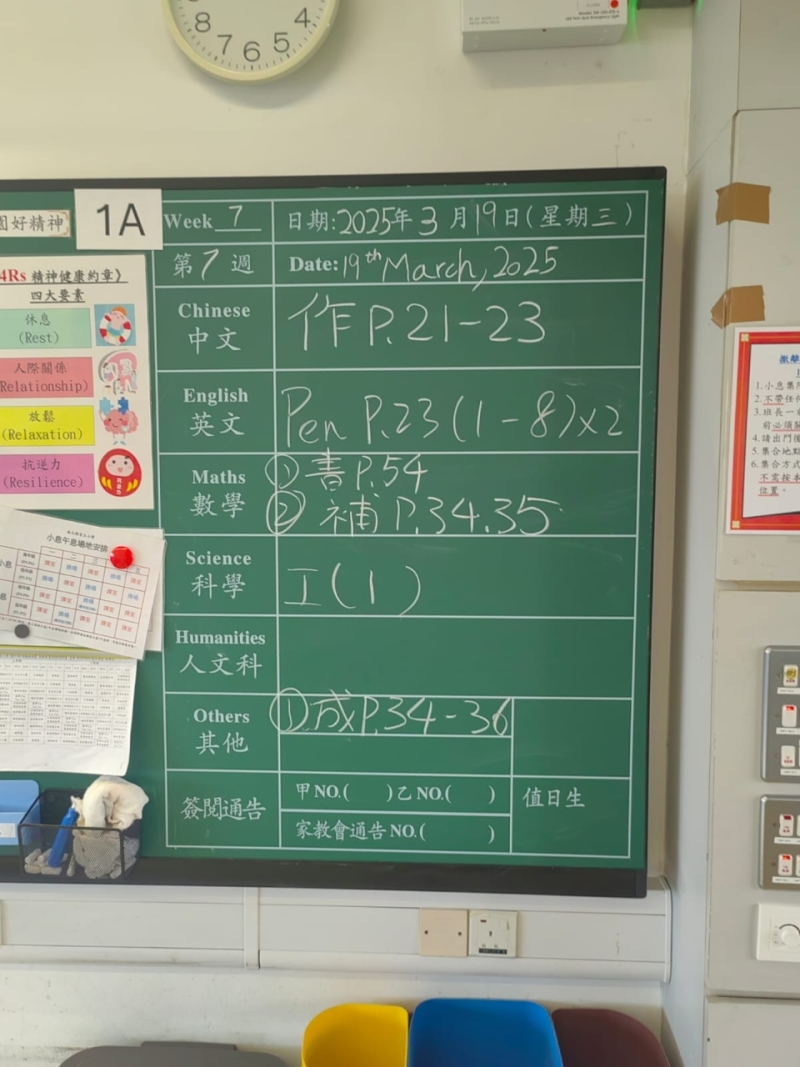 8 7 6 5 4
園好精神
1A
Week 7
日期:2025年3月19日(星期三)
第7週
Date: 19th March, 2025
4Rs 精神健康約章》
四大要素
休息
(Rest)
人際關係
(Relationship)
放鬆
(Relaxation)
抗逆力
(Resilience)
Chinese
中文
作 P.21-23
English
英文
Pen P.23(1-8)x2
Maths
數學
① 書 P.54
② 補 P.34.35
Science
科學
工(1)
Humanities
人文科
Others
其他
① 成 P.34-36
簽閱通告
甲NO.( )乙NO.( )
家教會通告NO.( )
值日生
小息午息場地安排
1.小息集
2.不帶任
3.班長一
前必須
4.請出門
5.集合地點
6.集合方式
不需按本
位置。